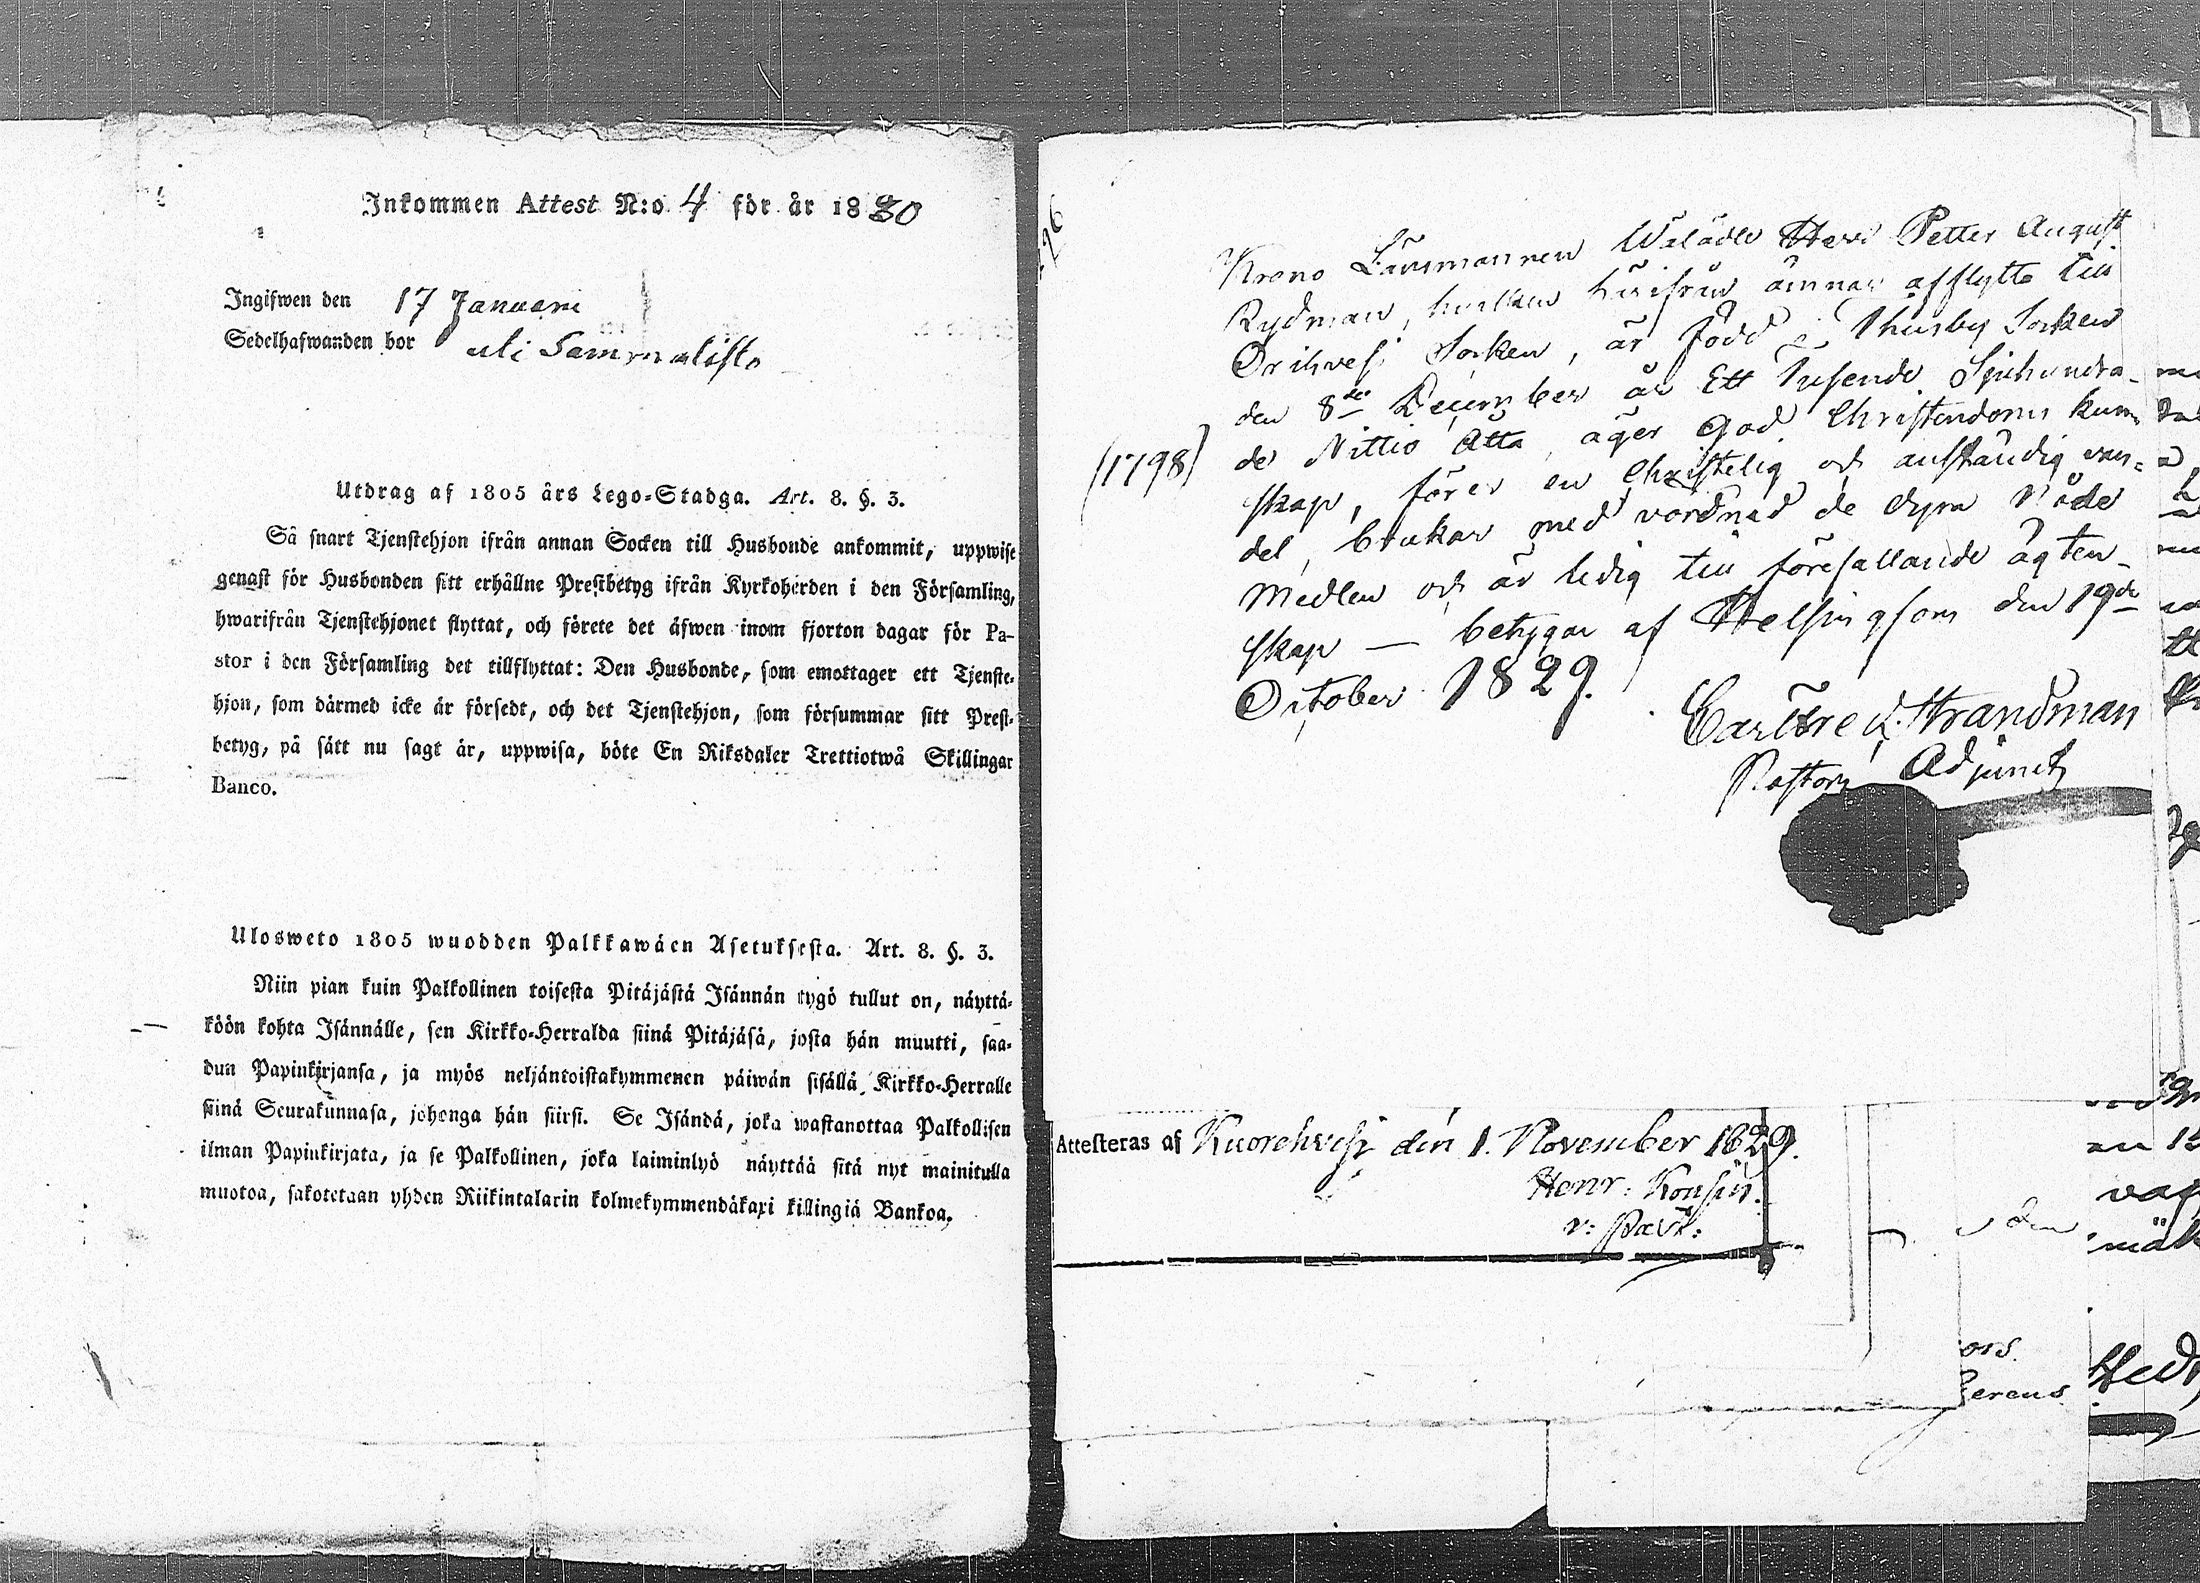 Inkommen Attest N:o 4 för år 1830
Ingifwen den 17 Januarii
Sedelhafwanden bor uti Sammalisto
Utdrag af 1805 års Lego-Stadga. Art. 8. §. 3.
Så snart Tjenstehjon ifrån annan Socken till Husbonde ankommit, uppwise
genast för Husbonden sitt erhållne Prestbetyg ifrån Kyrkoherden i den Församling,
hwarifrån Tjenstehjonet flyttat, och förete det äfwen inom fjorton dagar för Pa-
stor i den Församling det tillflyttat: Den Husbonde, som emottager ett Tjenste-
hjon, som därmed icke är försedt, och det Tjenstehjon, som försummar sitt Prest-
betyg, på sätt nu sagt är, uppwisa, böte En Riksdaler Trettiotwå Skillingar
Banco.
Ulosweto 1805 wuodden Palkkawäen Asetuksesta. Art. 8. §. 3.
Niin pian kuin Palkollinen toisesta Pitäjästä Isännän tygö tullut on, näyttä-
köön kohta Isännälle, sen Kirkko-Herralda siinä Pitäjäsä, josta hän muutti, saa-
dun Papinkirjansa, ja myös neljäntoistakymmenen päiwän sisällä Kirkko-Herralle
siinä Seurakunnasa, johonga hän siirsi. Se Isändä, joka wastanottaa Palkollisen
ilman Papinkirjata, ja se Palkollinen, joka laiminlyö näyttää sitä nyt mainitulla
muotoa, sakotetaan yhden Riikintalarin kolmekymmendäkaxi killingiä Bankoa.
Krono Länsmannen Wälädle Herr Petter August
Rydman, hvilken härifrån ämnar afflytta till
Orihvesi Socken, är född i Thusby Socken
den 8de December år Ett Tusende Sjuhundra-
(1798) de Nittio Åtta, äger god Christendoms kun-
skap, förer en Christelig och anständig van-
del, brukar med vördnad de dyra Nåde
Medlen och är ledig till förefallande ägten-
skap — betygar af Helsingfors den 19de
October 1829.
Carl Fred. Strandman
Pastors Adjunct
Attesteras af Kuorehvesi den 1. November 1829.
Henr. Konsin.
v: Past: